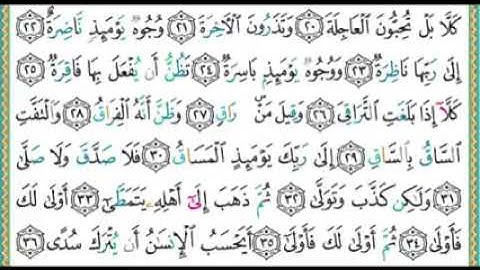 كَلَّا بَلْ تُحِبُّونَ الْعَاجِلَةَ ٢٠ وَتَذَرُونَ الْآخِرَةَ ٢١ وُجُوهٌ يَوْمَئِذٍ نَاضِرَةٌ ٢٢
إِلَىٰ رَبِّهَا نَاظِرَةٌ ٢٣ وَوُجُوهٌ يَوْمَئِذٍ بَاسِرَةٌ ٢٤ تَظُنُّ أَنْ يُفْعَلَ بِهَا فَاقِرَةٌ ٢٥
كَلَّا إِذَا بَلَغَتِ التَّرَاقِيَ ٢٦ وَقِيلَ مَنْ ۜ رَاقٍ ٢٧ وَظَنَّ أَنَّهُ الْفِرَاقُ ٢٨ وَالْتَفَّتِ
السَّاقُ بِالسَّاقِ ٢٩ إِلَىٰ رَبِّكَ يَوْمَئِذٍ الْمَسَاقُ ٣٠ فَلَا صَدَّقَ وَلَا صَلَّىٰ
٣١ وَلَٰكِنْ كَذَّبَ وَتَوَلَّىٰ ٣٢ ثُمَّ ذَهَبَ إِلَىٰ أَهْلِهِ يَتَمَطَّىٰ ٣٣ أَوْلَىٰ لَكَ
فَأَوْلَىٰ ٣٤ ثُمَّ أَوْلَىٰ لَكَ فَأَوْلَىٰ ٣٥ أَيَحْسَبُ الْإِنْسَٰنُ أَنْ يُتْرَكَ سُدًى ٣٦